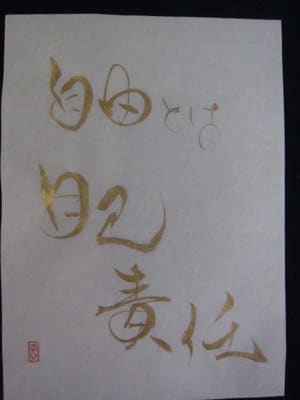 自由とは
自己
責任